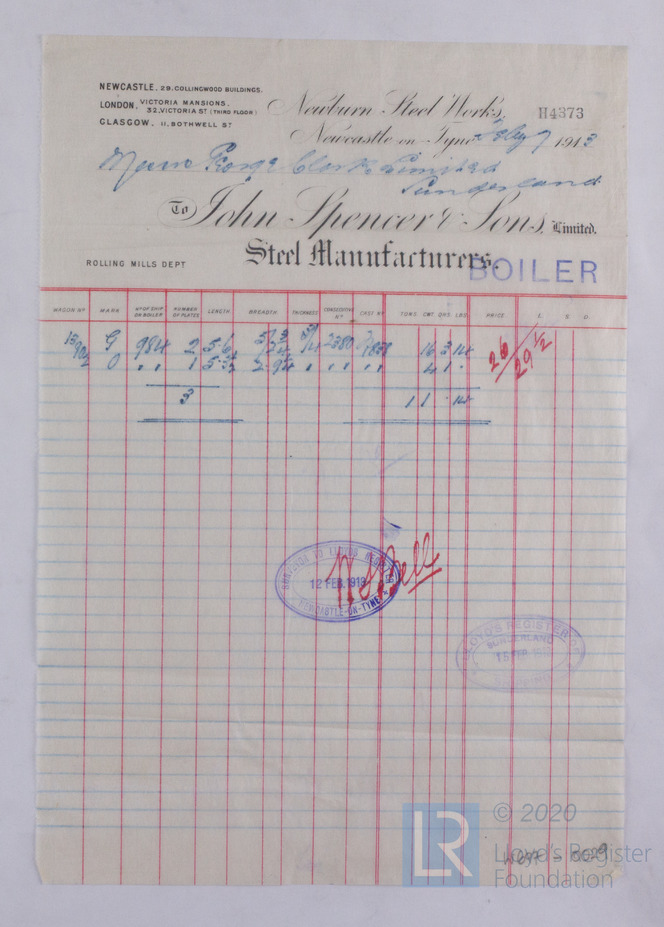 NEWCASTLE. 29. COLLINGWOOD BUILDINGS.
LONDON. VICTORIA MANSIONS.
32, VICTORIA ST (THIRD FLOOR)
GLASGOW. 11, BOTHWELL ST
Newburn Steel Works,
H4373
Newcastle on Tyne Feby 7 1913
George Clark Limited
Sunderland
To John Spencer & Sons, Limited.
Steel Manufacturers.
BOILER
ROLLING MILLS DEPT
WAGON Nº MARK Nº OF SHIP OR BOILER NUMBER OF PLATES LENGTH BREADTH THICKNESS CONSECUTIVE Nº CAST Nº TONS CWT QRS LBS PRICE £ S D
G 984 2 2380 16 3 14
O " " 1 " " " 4 1 "
26/29½
3 1 1 " 14
SURVEYORS TO LLOYDS REGISTER
12 FEB. 1913
NEWCASTLE-ON-TYNE
Bell
LLOYD'S REGISTER OF
SUNDERLAND
15 FEB
SHIPPING
LR
© 2020
Lloyd's Register
Foundation